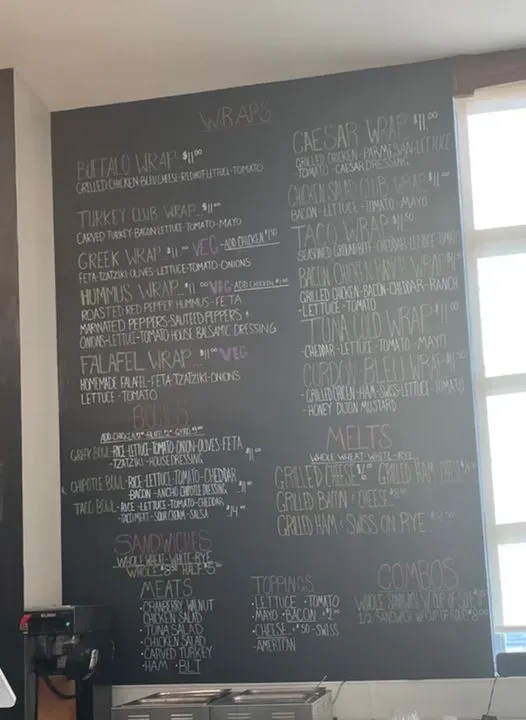 WRAPS
BUFFALO WRAP $11.00
GRILLED CHICKEN-BLEU CHEESE-RED HOT-LETTUCE-TOMATO
TURKEY CLUB WRAP $11.00
CARVED TURKEY-BACON-LETTUCE-TOMATO-MAYO
GREEK WRAP $11.00 VEG -ADD CHICKEN
FETA-TZATZIKI-OLIVES-LETTUCE-TOMATO-ONIONS
HUMMUS WRAP $11.00 VEG-ADD CHICKEN
ROASTED RED PEPPER HUMMUS-FETA
MARINATED PEPPERS-SAUTEED PEPPERS &
ONIONS-LETTUCE-TOMATO-HOUSE BALSAMIC DRESSING
FALAFEL WRAP $11.00 VEG
HOMEMADE FALAFEL-FETA-TZATZIKI-ONIONS
LETTUCE-TOMATO
CAESAR WRAP $11.00
GRILLED CHICKEN-PARMESAN-LETTUCE
TOMATO-CAESAR DRESSING
CHICKEN SALAD CLUB WRAP $11.00
BACON-LETTUCE-TOMATO-MAYO
TACO WRAP $11.50
SEASONED GROUND BEEF-CHEDDAR-LETTUCE-TOMATO
BACON CHICKEN RANCH WRAP
GRILLED CHICKEN-BACON-CHEDDAR-RANCH
-LETTUCE-TOMATO
TUNA WRAP $11.00
CHEDDAR-LETTUCE-TOMATO-MAYO
CORDON BLEU WRAP
GRILLED CHICKEN-HAM-SWISS-LETTUCE-TOMATO
-HONEY DIJON MUSTARD
BOWLS
ADD CHICKEN GYRO
GREEK BOWL-RICE-LETTUCE-TOMATO-ONION-OLIVES-FETA
-TZATZIKI-HOUSE DRESSING
CHIPOTLE BOWL-RICE-LETTUCE-TOMATO-CHEDDAR
-BACON-ANCHO CHIPOTLE DRESSING
TACO BOWL-RICE-LETTUCE-TOMATO-CHEDDAR
-TACO MEAT-SOUR CREAM-SALSA $14.00
MELTS
WHOLE WHEAT-WHITE-RYE
GRILLED CHEESE GRILLED HAM & CHEESE
GRILLED BACON & CHEESE
GRILLED HAM & SWISS ON RYE
SANDWICHES
WHOLE WHEAT-WHITE-RYE
WHOLE HALF
MEATS
-CRANBERRY WALNUT
CHICKEN SALAD
-TUNA SALAD
-CHICKEN SALAD
-CARVED TURKEY
-HAM -BLT
TOPPINGS
-LETTUCE -TOMATO
-MAYO -BACON
-CHEESE -SWISS
-AMERICAN
COMBOS
WHOLE SANDWICH W/ CUP OF SOUP
1/2 SANDWICH W/ CUP OF SOUP